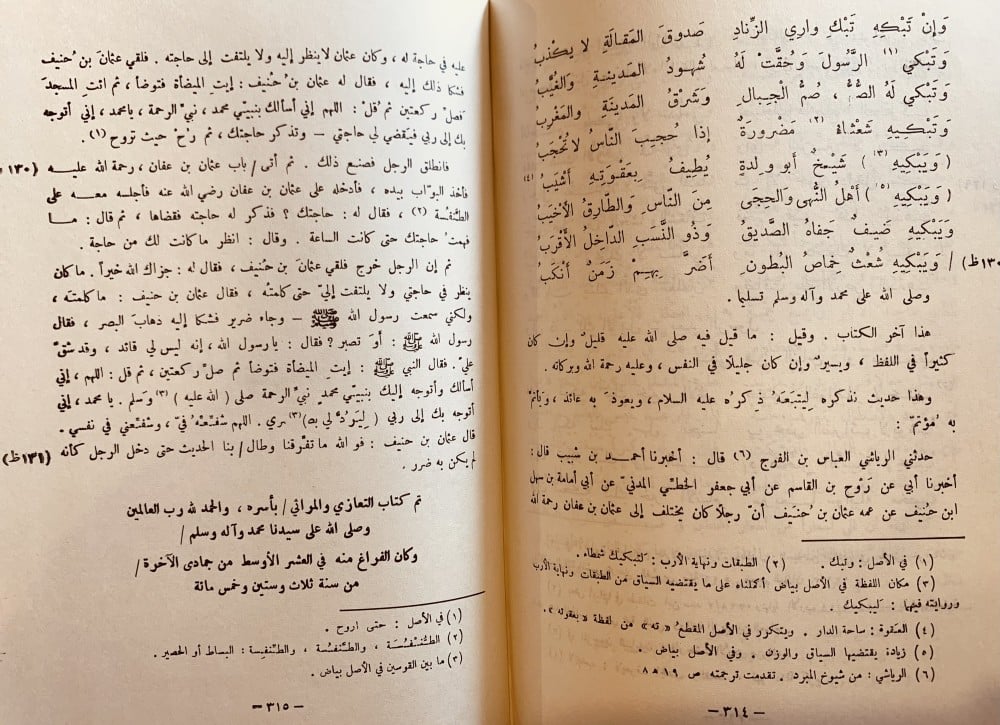 وَإنْ تَبْكِهِ تَبْك واري الزِّناد صَدوقَ المَقالَةِ لا يكْذبُ
وَتَبْكي (١) الرَّسُولَ وَحُقَّتْ لَهُ شُهُودُ المَدينةِ والغُيَّبُ
وَتَبْكي لَهُ الصُّمُّ ، صُمُّ الجِبالِ وَشَرْقُ المَدينَةِ والمَغْرِبُ
وَتَبْكِيهِ شَعْثاءُ (٢) مَضْرورَةٌ إذا حُجِبَ النَّاسُ لا تُحْجَبُ
( وَيَبْكِيهِ (٣) ) شَيْخٌ أبو وِلدةٍ يُطيفُ بِعَقْوَتِهِ أشْيَبُ (٤)
( وَيَبْكِيهِ (٥) ) أهْلُ النُّهى والحِجى مِنَ النَّاسِ والطَّارِقُ الأخْيَبُ
وَيَبْكِيهِ ضَيْفٌ جَفاهُ الصَّديقُ وَذُو النَّسَبِ الدَّاخِلُ الأقْرَبُ
١٣٠ظ) / وَيَبْكِيهِ شُعْثٌ خِماصُ البُطونِ أضَرَّ بِهِمْ زَمَنٌ أنْكَبُ
وصلى الله على محمد وآله وسلم تسليما .
هذا آخر الكتاب . وقيل : ما قيل فيه صلى الله عليه قليلٌ وإن كان
كثيراً في اللفظ ، ويسيرٌ وإن كان جليلاً في النفس ، وعليه رحمة الله وبركاته .
وهذا حديث نذكره لِيَتبَعَهُ ذِكرُه عليه السلام ، ويعوذَ به عائذ ، ويَأتَمَّ
به مُؤتمّ :
حدثني الرياشي العباس بن الفرج (٦) قال : أخبرنا أحمد بن شبيب قال :
أخبرنا أبي عن رَوْح بن القاسم عن أبي جعفر الخطمي المدنيّ عن أبي أمامة بن سهل
ابن حُنَيف عن عمه عثمان بن حُنَيف أنّ رجلاً كان يختلف إلى عثمان بن عفان رحمة الله
(١) في الأصل : وتبك . (٢) الطبقات ونهاية الأرب : لتبكيك شمطاء .
(٣) مكان اللفظة في الأصل بياض أكملناه على ما يقتضيه السياق من الطبقات ونهاية الأرب
وروايته فيهما : ليبكيك .
(٤) العقوة : ساحة الدار . ويتكرر في الأصل المقطع « ته » من لفظة « بعقوته » .
(٥) زيادة يقتضيها السياق والوزن . وفي الأصل بياض .
(٦) الرياشي : من شيوخ المبرد . تقدمت ترجمته ص ١٩ ح ٨
— ٣١٤ —
عليه في حاجة له ، وكان عثمان لاينظر إليه ولا يلتفت إلى حاجته . فلقي عثمانَ بن حُنيف
فشكا ذلك إليه ، فقال له عثمان بن حُنيف : إيت الميضأة فتوضأ ، ثم ائت المسجدَ
فصلّ ركعتين ثم قل : اللهم إني أسألك بنبيي محمد ، نبيّ الرحمة ، يامحمد ، إني أتوجه
بك إلى ربي فيَقضي لي حاجتي – وتذكر حاجتك ، ثم رُحْ حيث تروح (١) .
فانطلق الرجل فصنع ذلك . ثم أتى / باب عثمان بن عفان ، رحمة الله عليـه (١٣٠ و
فأخذ البوّاب بيده ، فأدخله على عثمان بن عفان رضي الله عنه فأجلسه معـه على
الطِّنفسة (٢) ، فقال له : حاجتك ؟ فذكر له حاجته فقضاها ، ثم قال : مـا
فهمتُ حاجتك حتى كانت الساعة . وقال : انظر ماكانت لك من حاجة .
ثم إن الرجل خرج فلقي عثمانَ بن حُنيف ، فقال له : جزاك الله خيراً . ماكان
ينظر في حاجتي ولا يلتفت إليّ حتى كلمتَه ، فقال عثمان بن حنيف : ما كلمتُه ،
ولكني سمعت رسول الله ﷺ – وجاء ضرير فشكا إليه ذهابَ البصر ، فقال
رسول الله ﷺ : أوَ تصبر ؟ فقال : يا رسول الله ، إنه ليس لي قائد ، وقد شقّ
عليّ . فقال النبي ﷺ : إيتِ الميضأة فتوضأ ثم صلّ ركعتين ، ثم قل : اللهم ، إني
أسألك وأتوجه إليك بنبيي محمدٍ نبيّ الرحمة صلى ( الله عليه ) (٣) وسلم . يا محمد ، إني
أتوجه بك إلى ربي ( لِيَرُدَّ لي به) (٣) بصري . اللهم شفّعْهُ فيّ ، وشفّعني في نفسي .
قال عثمان بن حنيف : فو الله ما تفرّقنا وطال / بنا الحديث حتى دخل الرجل كأنه (١٣١ظ)
لم يكن به ضرر .
تم كتاب التعازي والمراثي / بأسره ، والحمد لله رب العالمين
وصلى الله على سيدنا محمد وآله وسلم /
وكان الفراغ منه في العشر الأوسط من جمادى الآخرة /
من سنة ثلاث وستين وخمس مائة
(١) في الأصل : حتى اروح .
(٢) الطُّنْفُسَة ، والطَّنفَسة ، والطِّنفِسة : البساط أو الحصير .
(٣) ما بين القوسين في الأصل بياض .
— ٣١٥ —